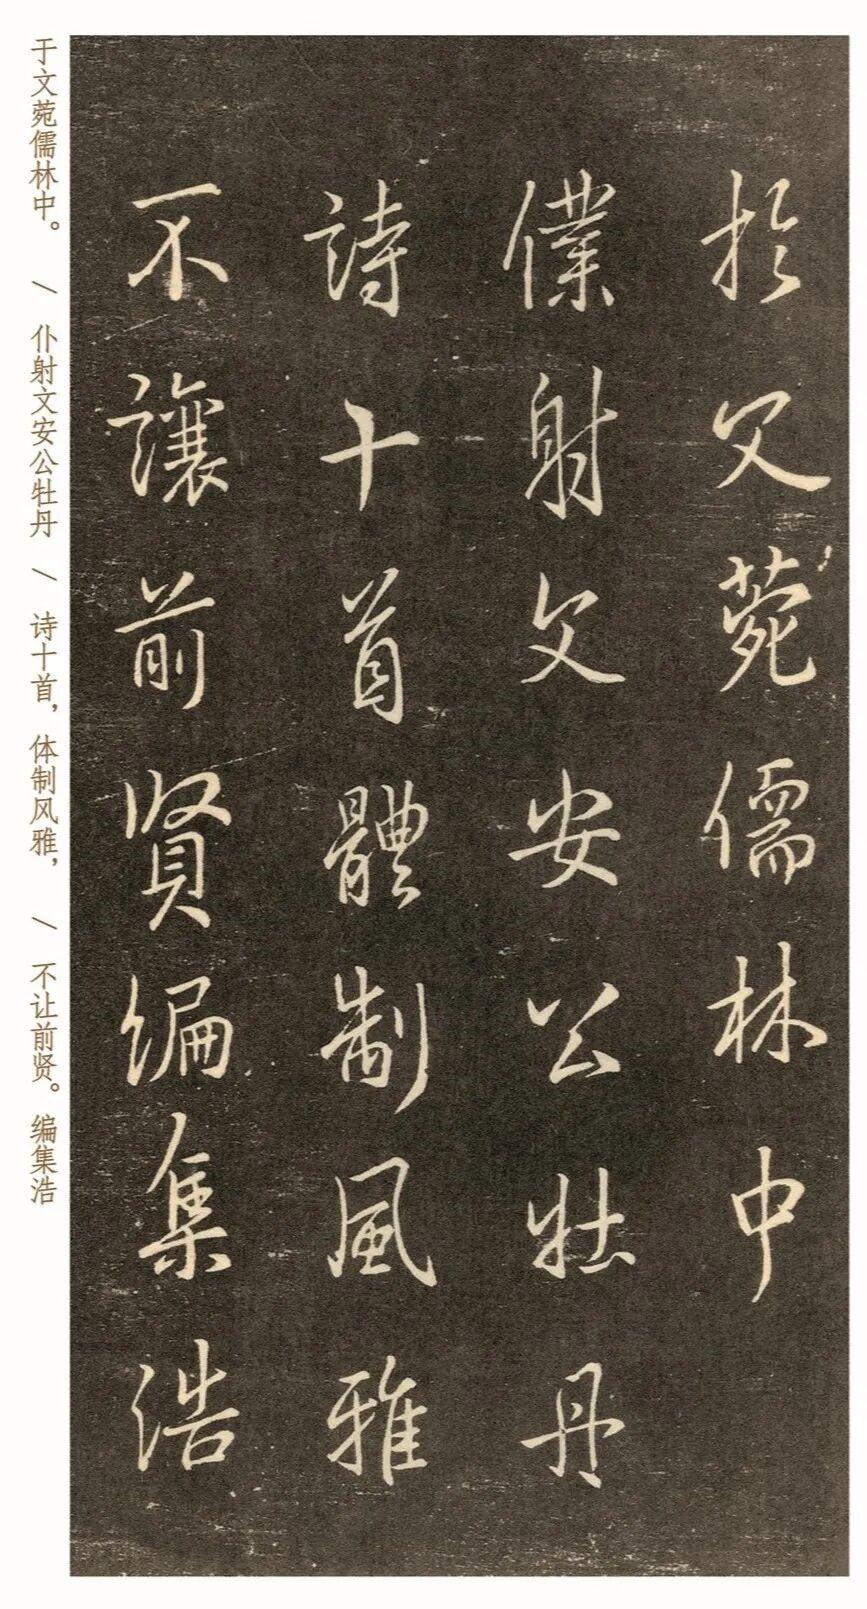 於文菀儒林中
僕射文安公牡丹
詩十首體制風雅
不讓前賢編集浩
于文菀儒林中。 / 仆射文安公牡丹 / 诗十首，体制风雅， / 不让前贤。编集浩